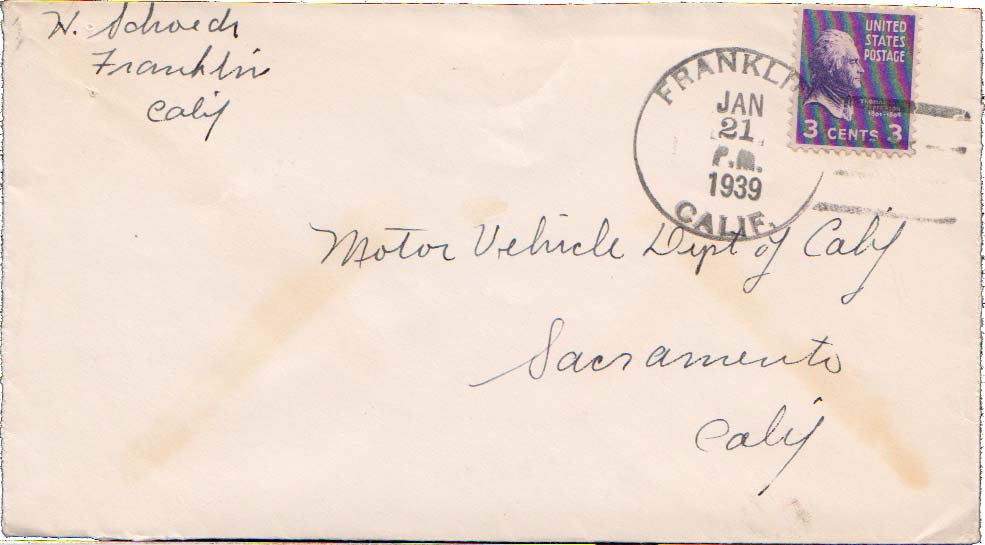 H. Schoech
Franklin
Calif
FRANKLIN
JAN
21
P.M.
1939
CALIF.
UNITED
STATES
POSTAGE
THOMAS
JEFFERSON
1801-1809
3 CENTS 3
Motor Vehicle Dept of Calif
Sacramento
Calif